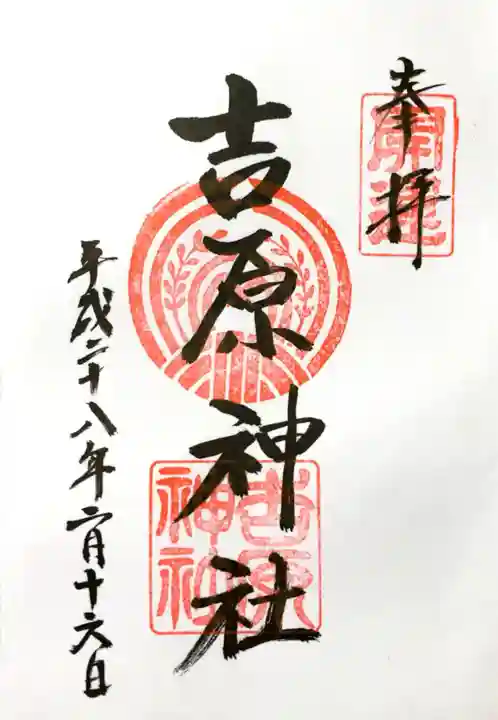 奉拝
開運
吉原神社
吉原
神社
平成二十八年二月十六日